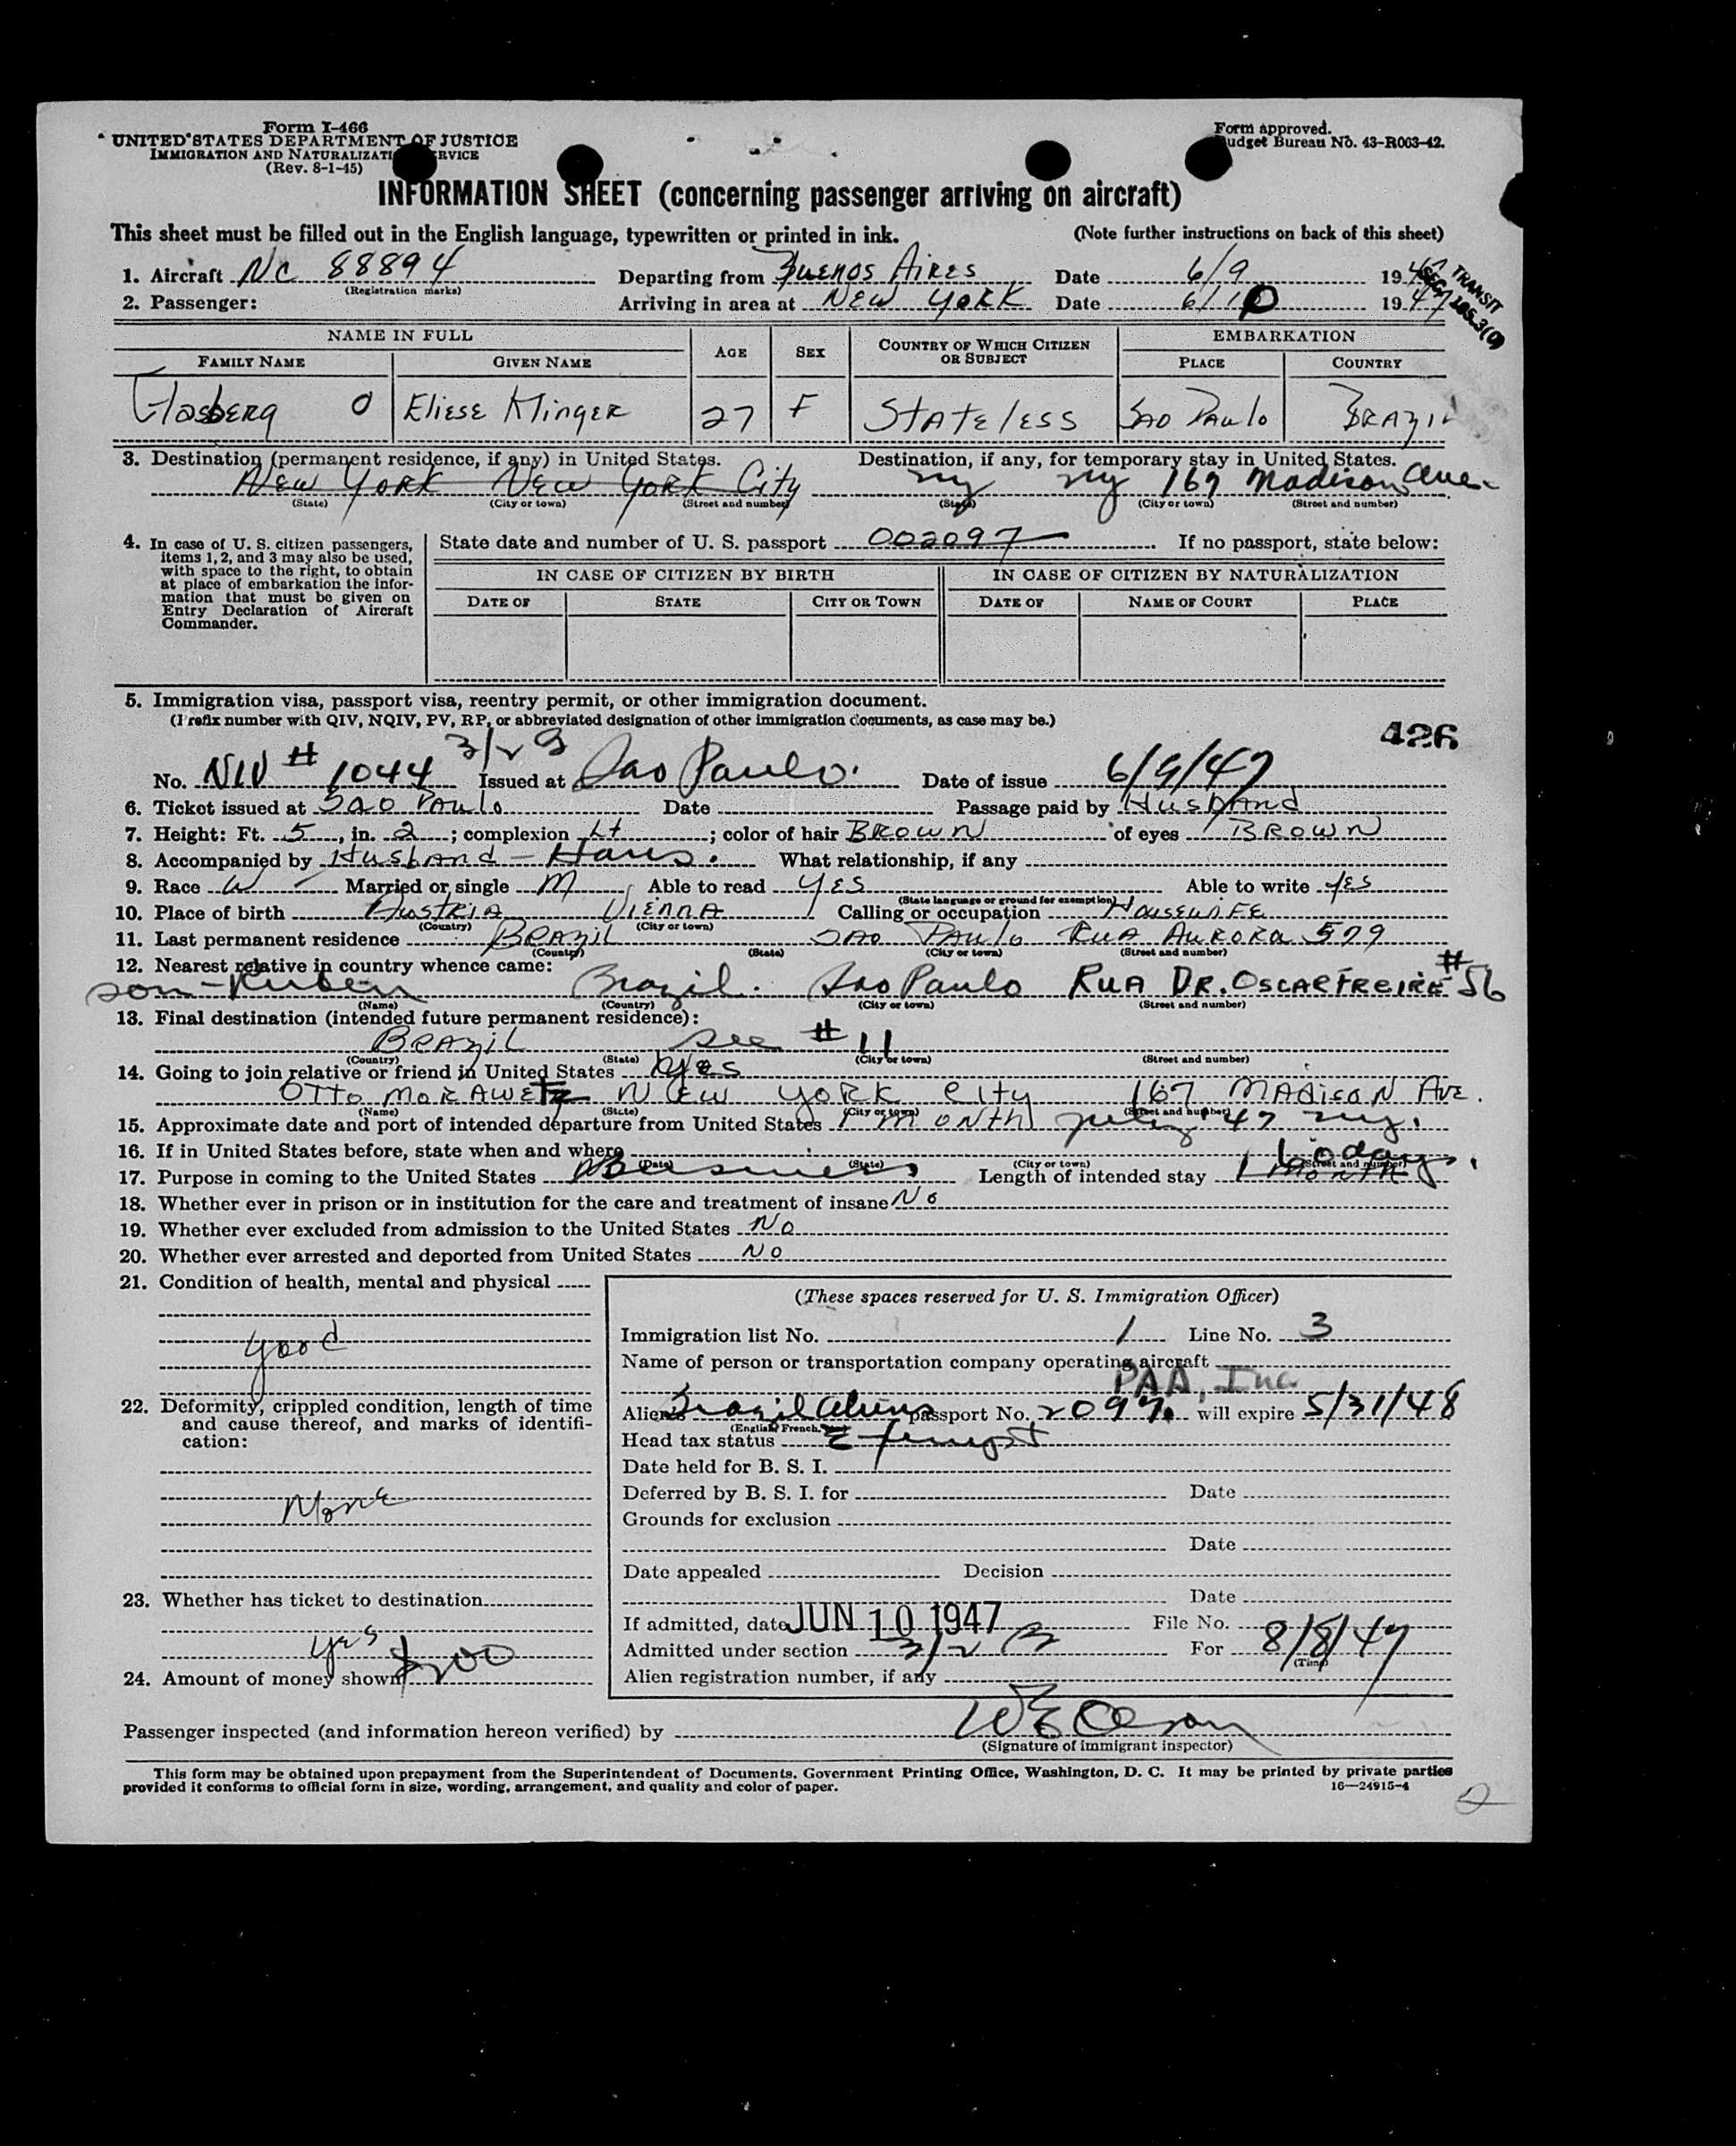 Form I-466
UNITED STATES DEPARTMENT OF JUSTICE
IMMIGRATION AND NATURALIZATION SERVICE
(Rev. 8-1-45)
Form approved.
Budget Bureau No. 43-R063-42.
INFORMATION SHEET (concerning passenger arriving on aircraft)
This sheet must be filled out in the English language, typewritten or printed in ink. (Note further instructions on back of this sheet)
1. Aircraft NC 88894 Departing from Buenos Aires Date 6/9 1947
(Registration marks)
2. Passenger: Arriving in area at New York Date 6/10 1947
TRANSIT
SEC. 105.3(a)
NAME IN FULL AGE SEX COUNTRY OF WHICH CITIZEN OR SUBJECT EMBARKATION
FAMILY NAME GIVEN NAME PLACE COUNTRY
Glasberg Eliese Klinger 27 F Stateless Sao Paulo Brazil
3. Destination (permanent residence, if any) in United States. Destination, if any, for temporary stay in United States.
New York New York City ny ny 167 Madison Ave.
(State) (City or town) (Street and number) (State) (City or town) (Street and number)
4. In case of U. S. citizen passengers, items 1, 2, and 3 may also be used, with space to the right, to obtain at place of embarkation the information that must be given on Entry Declaration of Aircraft Commander.
State date and number of U. S. passport 002097 If no passport, state below:
IN CASE OF CITIZEN BY BIRTH IN CASE OF CITIZEN BY NATURALIZATION
DATE OF STATE CITY OR TOWN DATE OF NAME OF COURT PLACE
5. Immigration visa, passport visa, reentry permit, or other immigration document.
(Prefix number with QIV, NQIV, PV, RP, or abbreviated designation of other immigration documents, as case may be.)
426
No. NIV # 1044 3/2 Issued at Sao Paulo. Date of issue 6/9/47
6. Ticket issued at Sao Paulo Date Passage paid by Husband
7. Height: Ft. 5, in. 2; complexion Lt; color of hair Brown of eyes Brown
8. Accompanied by Husband - Hans. What relationship, if any
9. Race W Married or single M Able to read Yes Able to write Yes
(State language or ground for exemption)
10. Place of birth Austria Vienna Calling or occupation Housewife
(Country) (City or town)
11. Last permanent residence Brazil Sao Paulo Rua Aurora 579
(Country) (State) (City or town) (Street and number)
12. Nearest relative in country whence came:
son - Ruben Brazil. Sao Paulo Rua Dr. Oscar Freire #56
(Name) (Country) (City or town) (Street and number)
13. Final destination (intended future permanent residence):
Brazil see #11
(Country) (State) (City or town) (Street and number)
14. Going to join relative or friend in United States yes
Otto Morawetz New York City 167 Madison Ave.
(Name) (State) (City or town) (Street and number)
15. Approximate date and port of intended departure from United States 1 month July 47 ny.
16. If in United States before, state when and where
(Date) (State) (City or town) (Street and number)
17. Purpose in coming to the United States Business Length of intended stay 1 month 60 days.
18. Whether ever in prison or in institution for the care and treatment of insane No
19. Whether ever excluded from admission to the United States No
20. Whether ever arrested and deported from United States No
21. Condition of health, mental and physical
good
22. Deformity, crippled condition, length of time and cause thereof, and marks of identification:
None
23. Whether has ticket to destination
yes
24. Amount of money shown $200
(These spaces reserved for U. S. Immigration Officer)
Immigration list No. 1 Line No. 3
Name of person or transportation company operating aircraft
PAA, Inc
Alien's Brazil Aliens passport No. 2097 will expire 5/31/48
Head tax status Exempt
Date held for B. S. I.
Deferred by B. S. I. for Date
Grounds for exclusion
Date
Date appealed Decision
Date
If admitted, date JUN 10 1947 File No.
Admitted under section 3/2 B For 8/8/47
(Time)
Alien registration number, if any
Passenger inspected (and information hereon verified) by
(Signature of immigrant inspector)
This form may be obtained upon prepayment from the Superintendent of Documents, Government Printing Office, Washington, D. C. It may be printed by private parties
provided it conforms to official form in size, wording, arrangement, and quality and color of paper. 16—24915-4
2